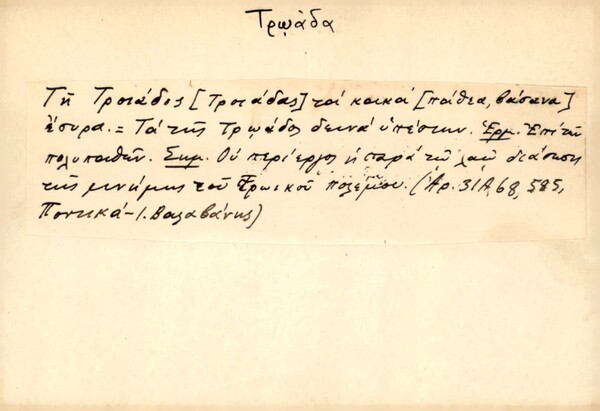 Τρῳάδα
Τῆ Τροιάδος [Τροιάδας] τά κακά [πάθεα, βάσανα]
ἔσυρα. = Τά τῆς Τρῳάδος δεινά ὑπέστην. Ἑρμ. Ἐπί τῶν
πολυπαθῶν. Σημ. Οὐ περίεργος ἡ παρά τῷ λαῷ διάσωσις
τῆς μνήμης τοῦ Τρωικοῦ πολέμου. (Ἀρ. 31Α, 68, 585,
Ποντικά - Ι. Βαλαβάνης)